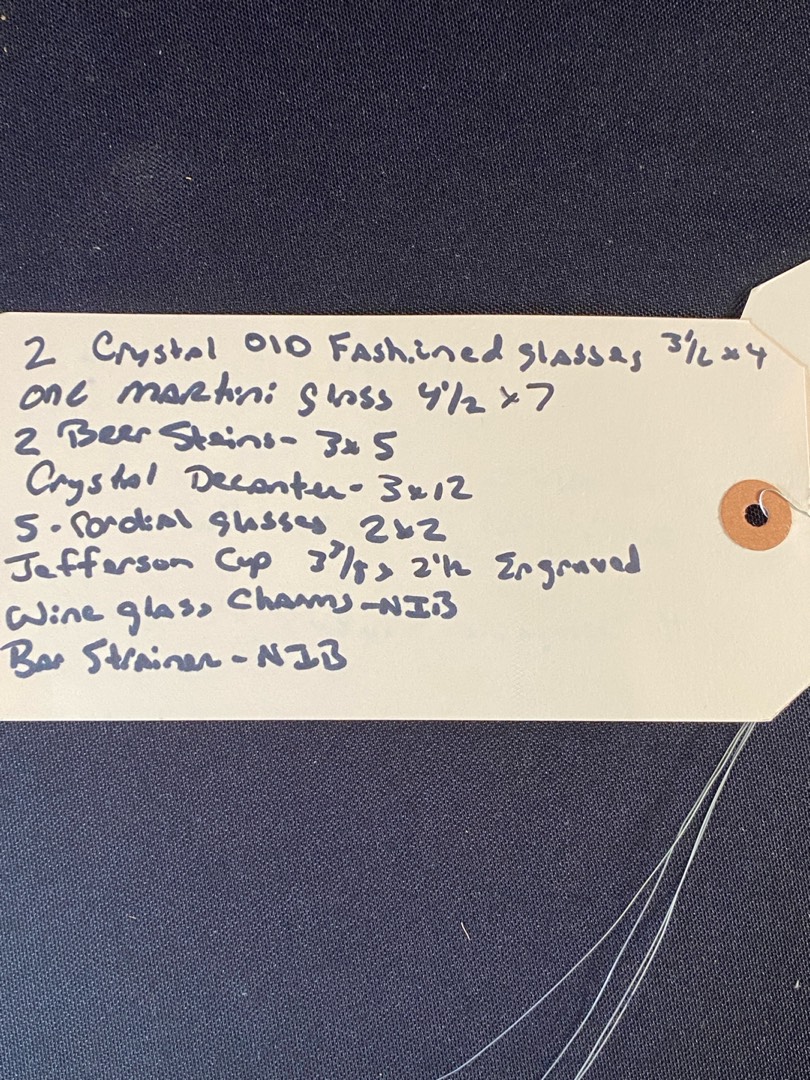 2 Crystal Old Fashined glasses 3 1/2 x 4
one martini glass 4 1/2 x 7
2 Beer Steins - 3x5
Crystal Decanter - 3x12
5 - Cordial glasses 2x2
Jefferson Cup 3 7/8 x 2 1/2 Engraved
Wine glass Charms - NIB
Bar Strainer - NIB